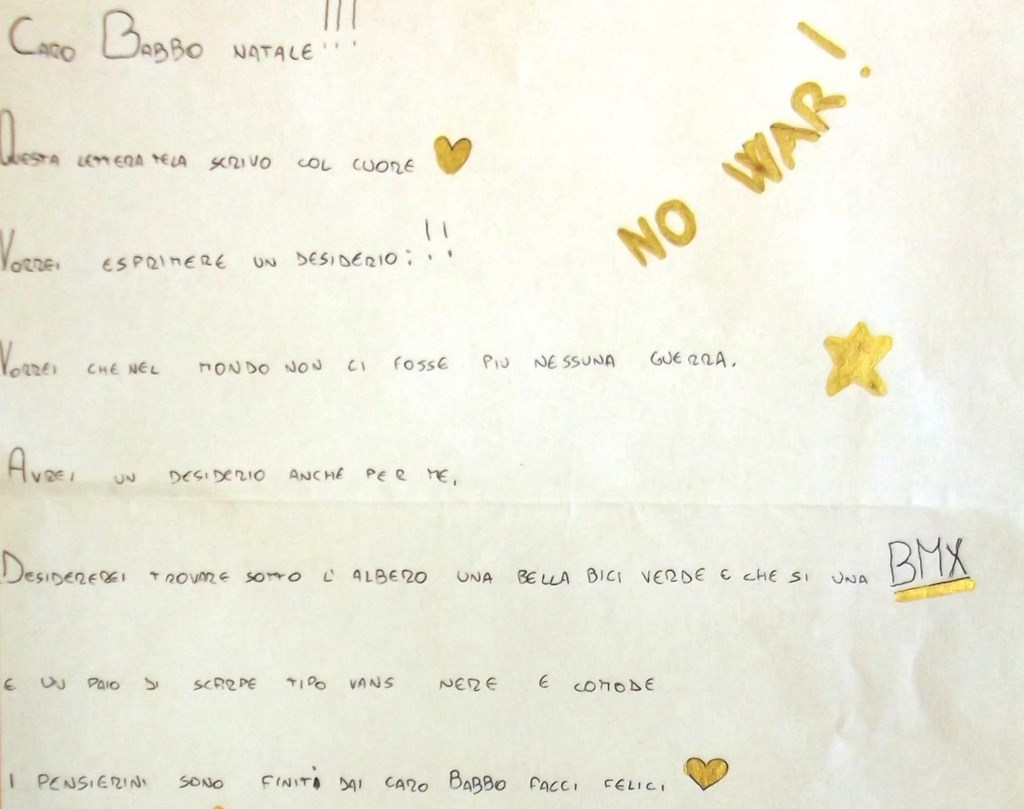 CARO BABBO NATALE!!!
NO WAR!
QUESTA LETTERA TELA SCRIVO COL CUORE
VORREI ESPRIMERE UN DESIDERIO: !!
VORREI CHE NEL MONDO NON CI FOSSE PIU NESSUNA GUERRA.
AVREI UN DESIDERIO ANCHE PER ME,
DESIDEREREI TROVARE SOTTO L'ALBERO UNA BELLA BICI VERDE E CHE SI UNA BMX
E UN PAIO DI SCARPE TIPO VANS NERE E COMODE
I PENSIERINI SONO FINITI DAI CARO BABBO FACCI FELICI